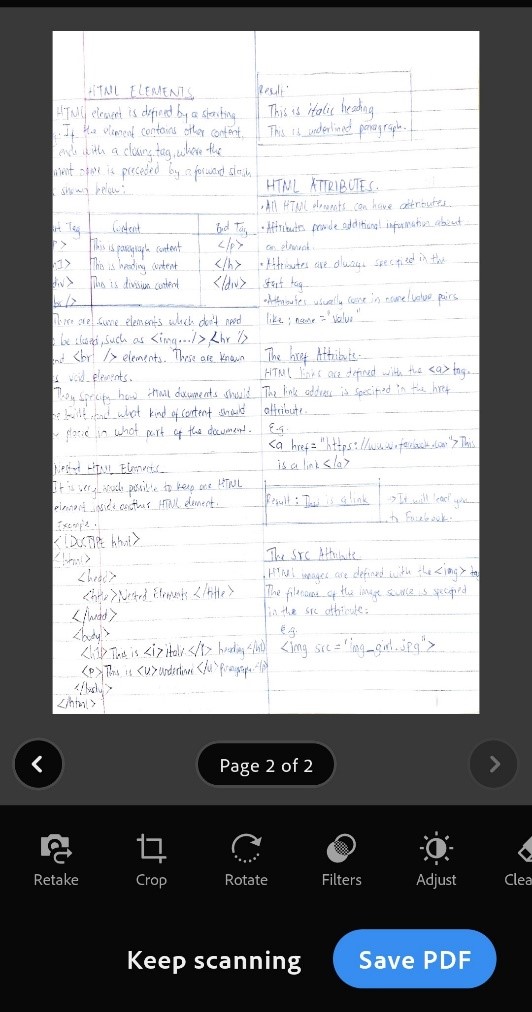 HTML ELEMENTS
HTML element is defined by a starting
g. If the element contains other content,
ends with a closing tag, where the
ment name is preceded by a forward slash
shown below:
rt Tag Content End Tag
p> This is paragraph content </p>
h1> This is heading content </h>
div> This is division content </div>
br/>
There are some elements which don't need
be closed, such as <img.../>, <hr />
and <br /> elements. These are known
s void elements.
They specify how HTML documents should
be built and what kind of content should
be placed in what part of the document.
Nested HTML Elements
It is very much possible to keep one HTML
element inside another HTML element.
Example.
<!DOCTYPE html>
<html>
<head>
<title>Nested Elements </title>
</head>
<body>
<h1> This is <i>italic</i> heading</h1>
<p>This is <u>underline</u> paragraph</p>
</body>
</html>
Result:
This is italic heading
This is underlined paragraph.
HTML ATTRIBUTES.
• All HTML elements can have attributes.
• Attributes provide additional information about
an element.
• Attributes are always specified in the
start tag.
• Attributes usually come in name/value pairs
like; name = "value"
The href Attribute.
HTML links are defined with the <a> tag.
The link address is specified in the href
attribute.
E.g.
<a href="https://www.facebook.com">This
is a link </a>
Result: This is a link → It will lead you
to Facebook.
The src Attribute
HTML images are defined with the <img> ta
The filename of the image source is specified
in the src attribute:
e.g.
<img src="img_girl.jpg">
Page 2 of 2
Retake Crop Rotate Filters Adjust Clea
Keep scanning Save PDF